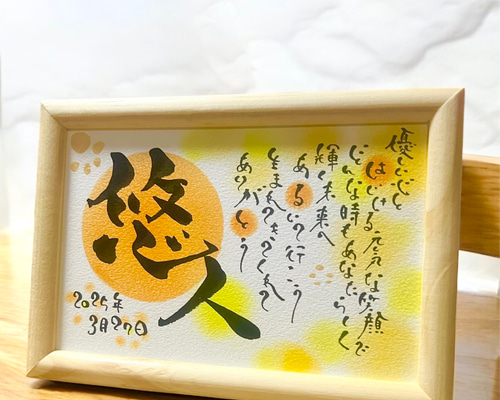 優しい心と
はじける元気な笑顔で
どんな時もあなたらしく
輝く未来へ
あるいて行こう
生まれてきてくれて
ありがとう
悠人
2025年
3月27日